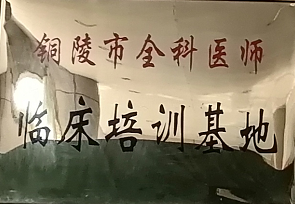 铜陵市全科医师
临床培训基地